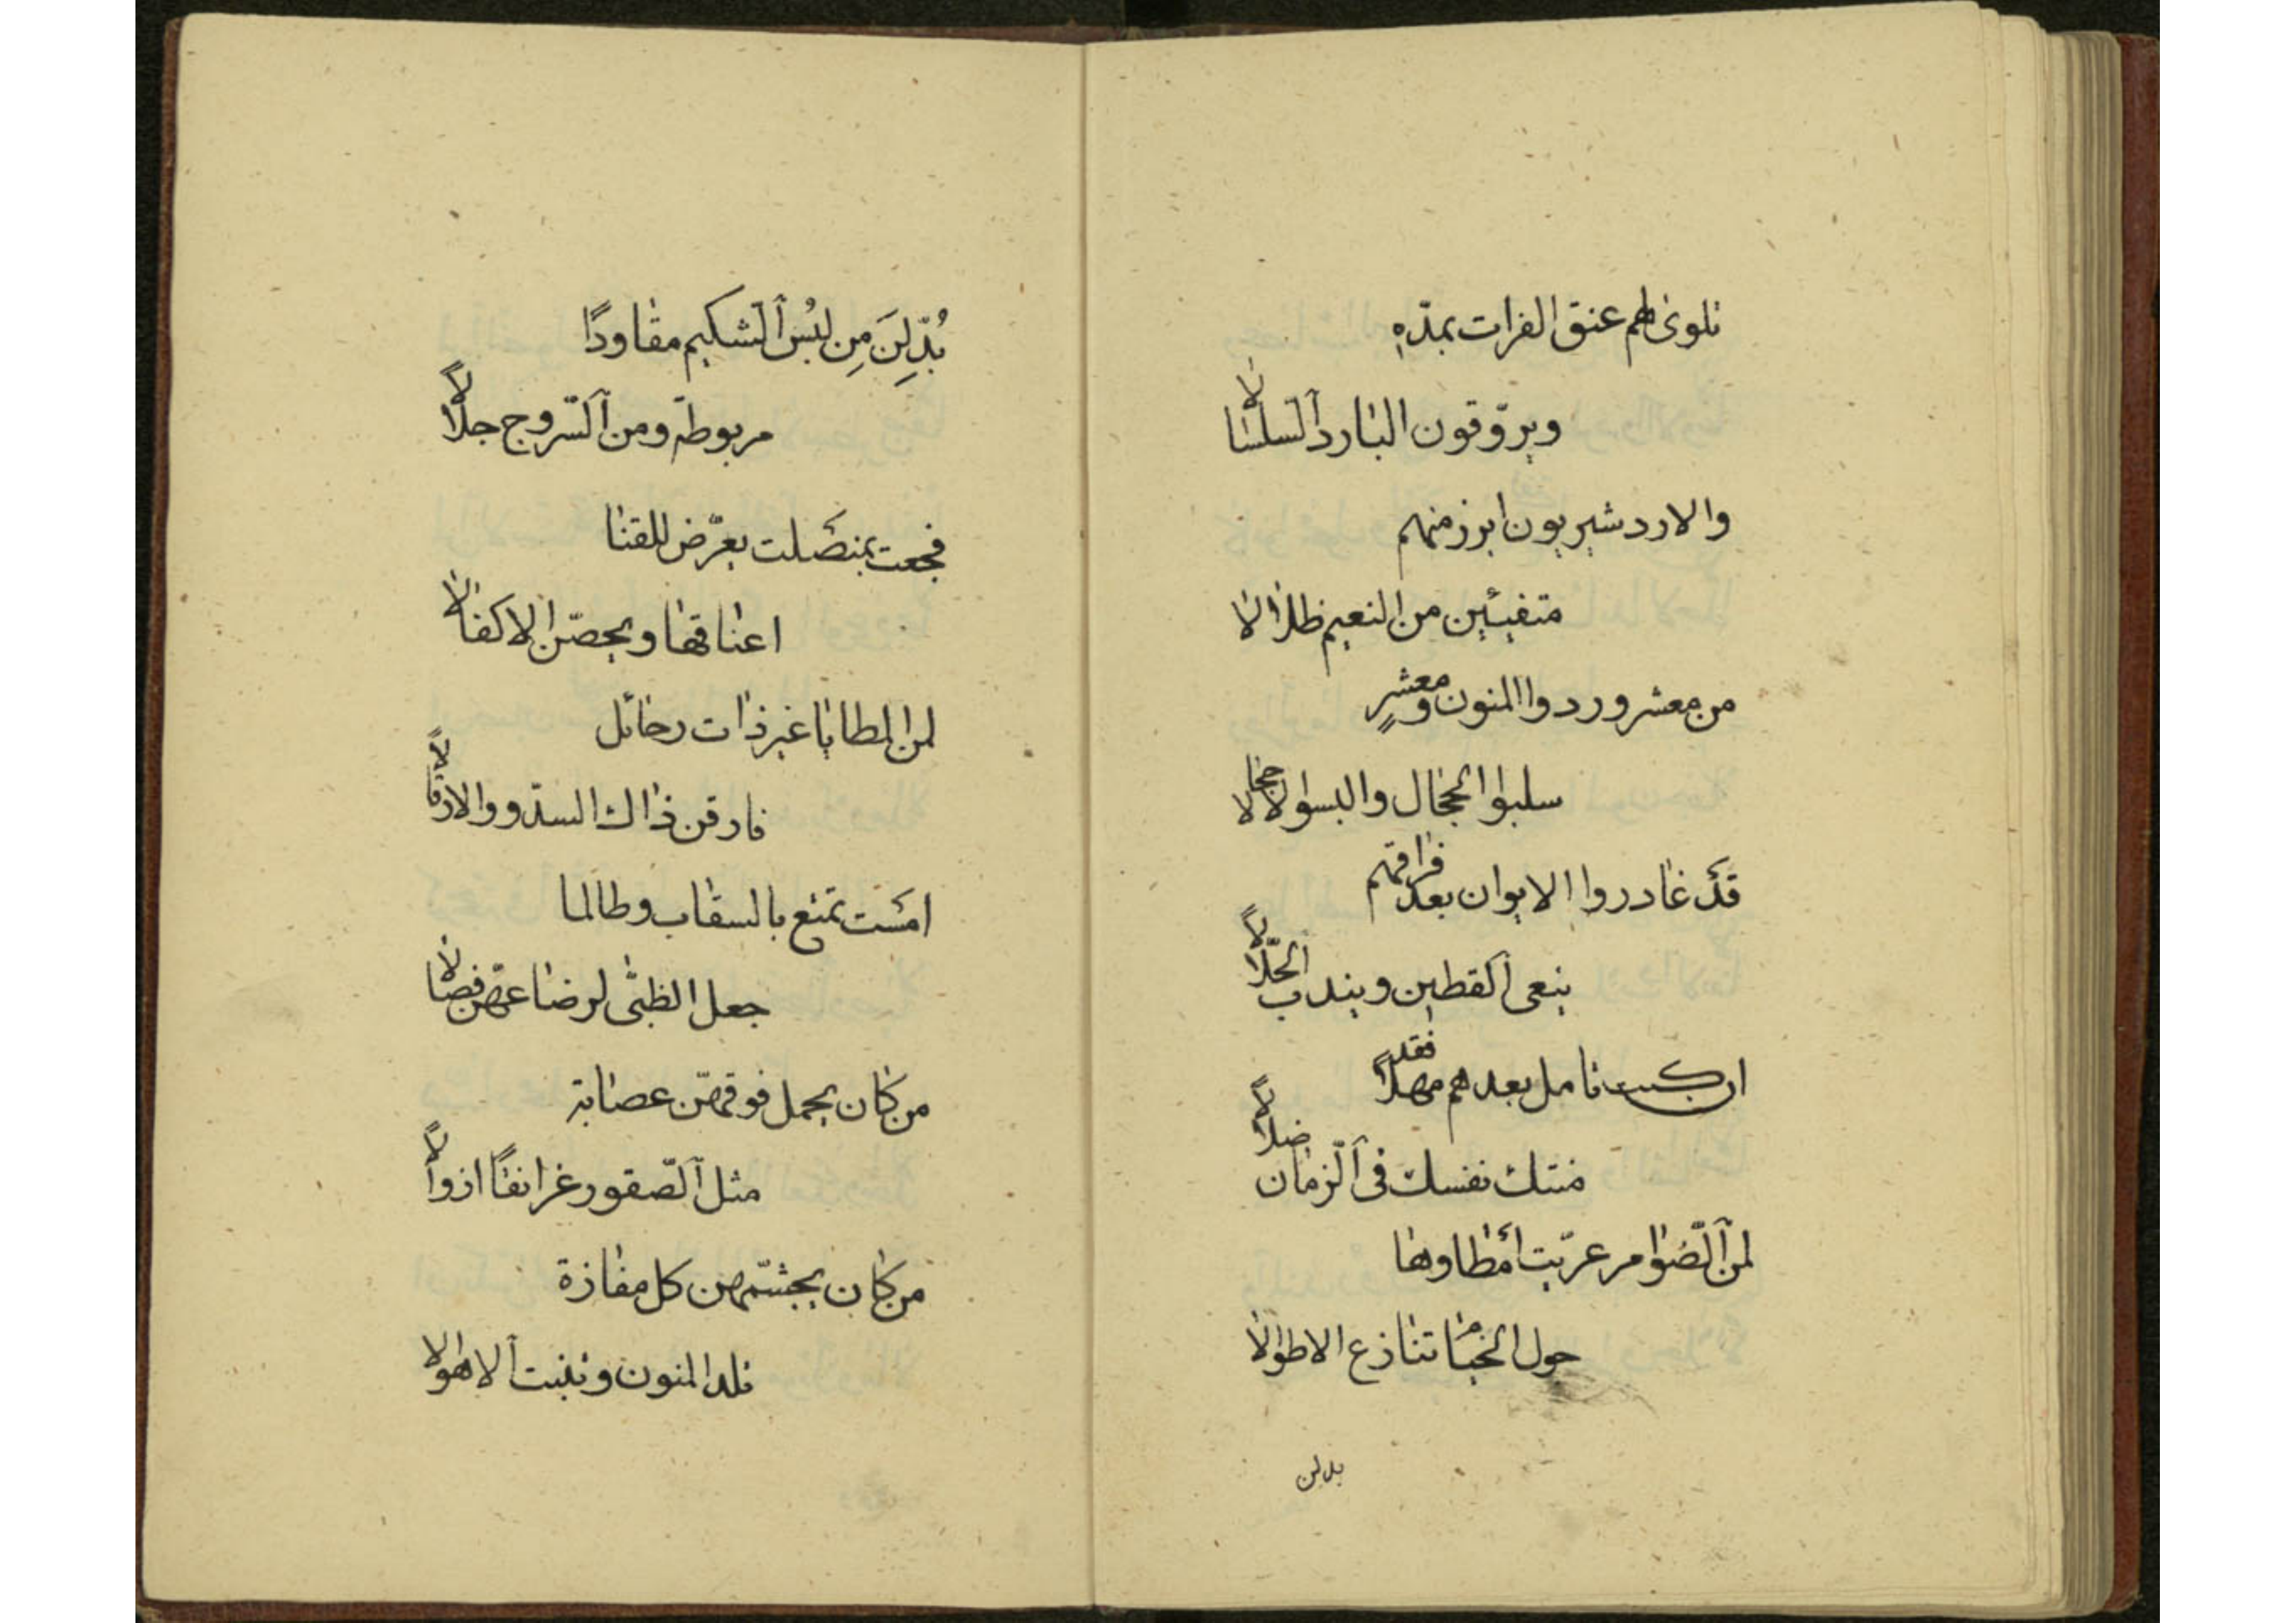 تلوى لهم عنق الفرات بمدّه
ويروّقون البارد السلسالا
والاردشيريون ابرز منهم
متفيئين من النعيم ظلالا
من معشر وردوا المنون ومعشرٍ
سلبوا الحجال والبسوا الاحجالا
قدْ غادروا الايوان بعد فراقهم
ينعى القطين ويندب الحلّالا
ان كنت تامل بعدهم مهلًا فقد
منتك نفسك فى الزمان ضلالًا
لمن الضوامر عرّيت أمطاوها
حول الخيام تنازع الاطوالا
بدلن
بُدِّلنَ مِن لبُس الشكيم مقاودًا
مربوطة ومن السّروج جلالًا
فجعت بمنصلت يعرّض للقنا
اعناقها ويحصّن الاكفالا
لمن المطايا غير ذات رحائل
فارقن ذاك السدو والارقالًا
امست تمنع بالسقاب وطالما
جعل الظبى لرضاعهنّ فصالا
من كان يحمل فوقهنّ عصابة
مثل الصّقور غرانقًا ازوالًا
من كان يجشّمهن كل مفازة
تلد المنون وتنبت الاهوالا